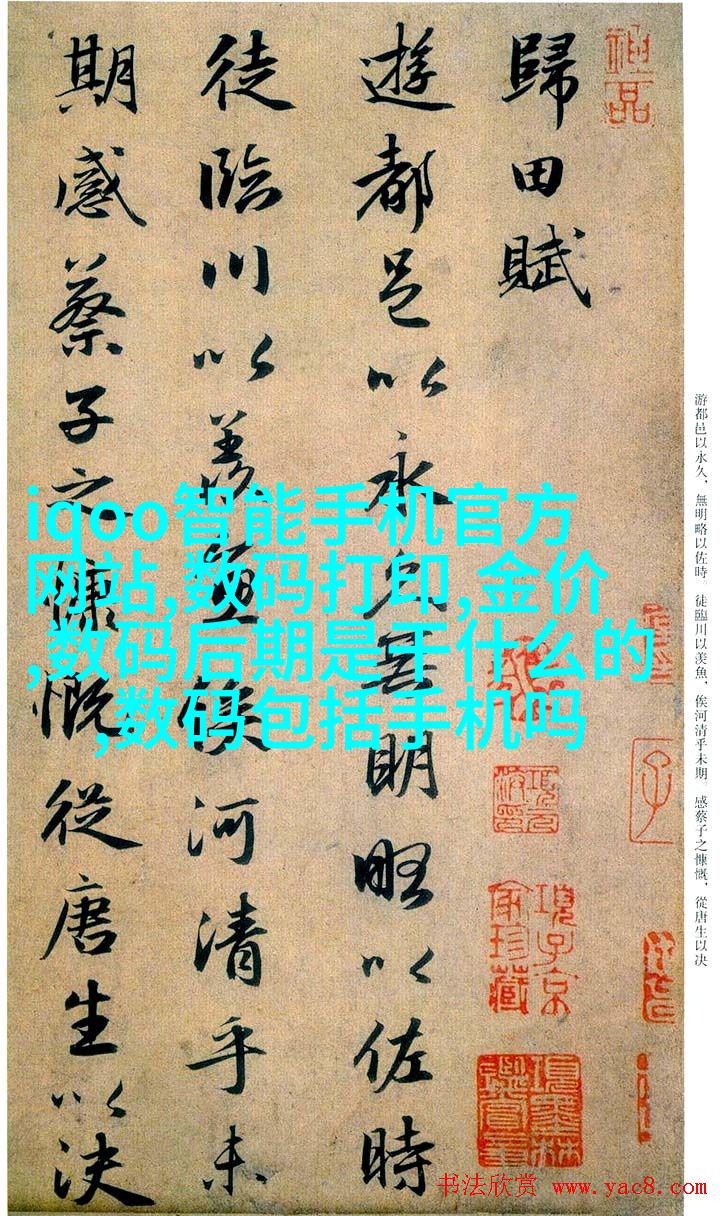 歸田賦
遊都邑以永久無明略以佐時
徒臨川以羡魚俟河清乎未
期感蔡子之慷慨從唐生以決
神品
項子京家珍藏
項墨林鑒賞章
游都邑以永久，無明略以佐時。徒臨川以羡魚，俟河清乎未期。感蔡子之慷慨，從唐生以決
iqoo智能手机官方
网站,数码打印,金价
,数码后期是干什么的
,数码包括手机吗
书法欣赏 www.yac8.com